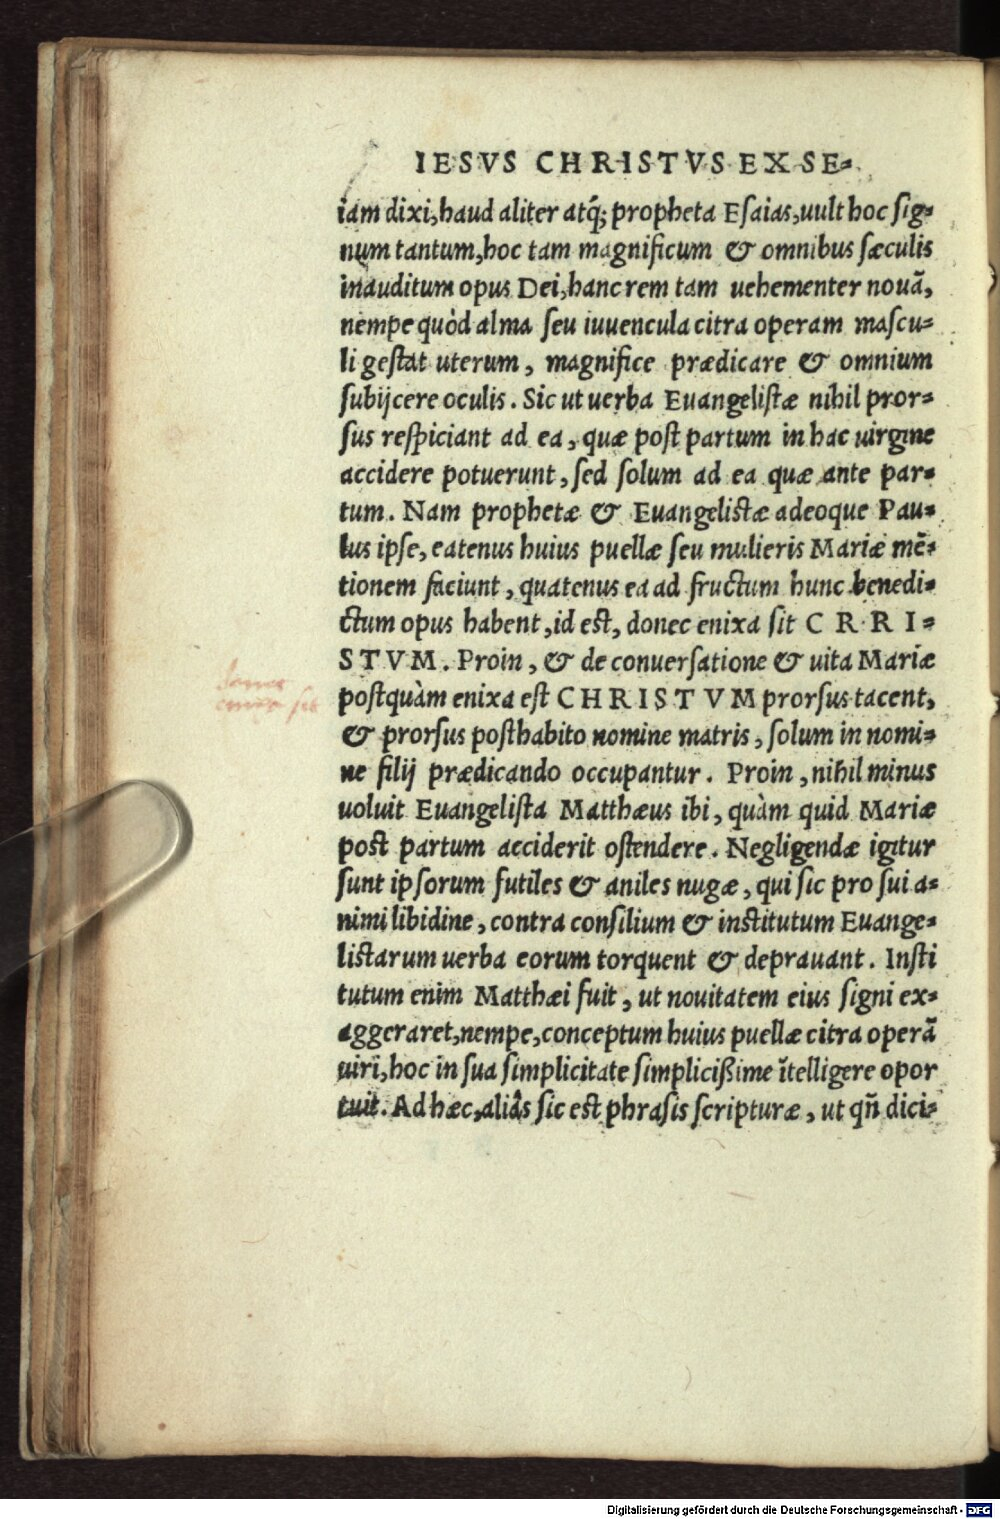 IESVS CHRISTVS EX SE-
iam dixi, haud aliter atq́; propheta Esaias, uult hoc sig-
num tantum, hoc tam magnificum & omnibus sæculis
inauditum opus Dei, hanc rem tam uehementer nouã,
nempe quòd alma seu iuuencula citra operam mascu-
li gestat uterum, magnifice prædicare & omnium
subijcere oculis. Sic ut uerba Euangelistæ nihil pror-
sus respiciant ad ea, quæ post partum in hac uirgine
accidere potuerunt, sed solum ad ea quæ ante par-
tum. Nam prophetæ & Euangelistæ adeoque Pau-
lus ipse, eatenus huius puellæ seu mulieris Mariæ mẽ-
tionem faciunt, quatenus ea ad fructum hunc benedi-
ctum opus habent, id est, donec enixa sit CRRI-
STVM. Proin, & de conuersatione & uita Mariæ
postquàm enixa est CHRISTVM prorsus tacent,
& prorsus posthabito nomine matris, solum in nomi-
ne filij prædicando occupantur. Proin, nihil minus
uoluit Euangelista Matthæus ibi, quàm quid Mariæ
post partum acciderit ostendere. Negligendæ igitur
sunt ipsorum futiles & aniles nugæ, qui sic pro sui a-
nimi libidine, contra consilium & institutum Euange-
listarum uerba eorum torquent & deprauant. Insti
tutum enim Matthæi fuit, ut nouitatem eius signi ex-
aggeraret, nempe, conceptum huius puellæ citra operã
uiri, hoc in sua simplicitate simplicißime ĩtelligere opor
tuit. Ad hæc, aliâs sic est phrasis scripturæ, ut qñ dici-
donec
enixa sit
Digitalisierung gefördert durch die Deutsche Forschungsgemeinschaft - DFG